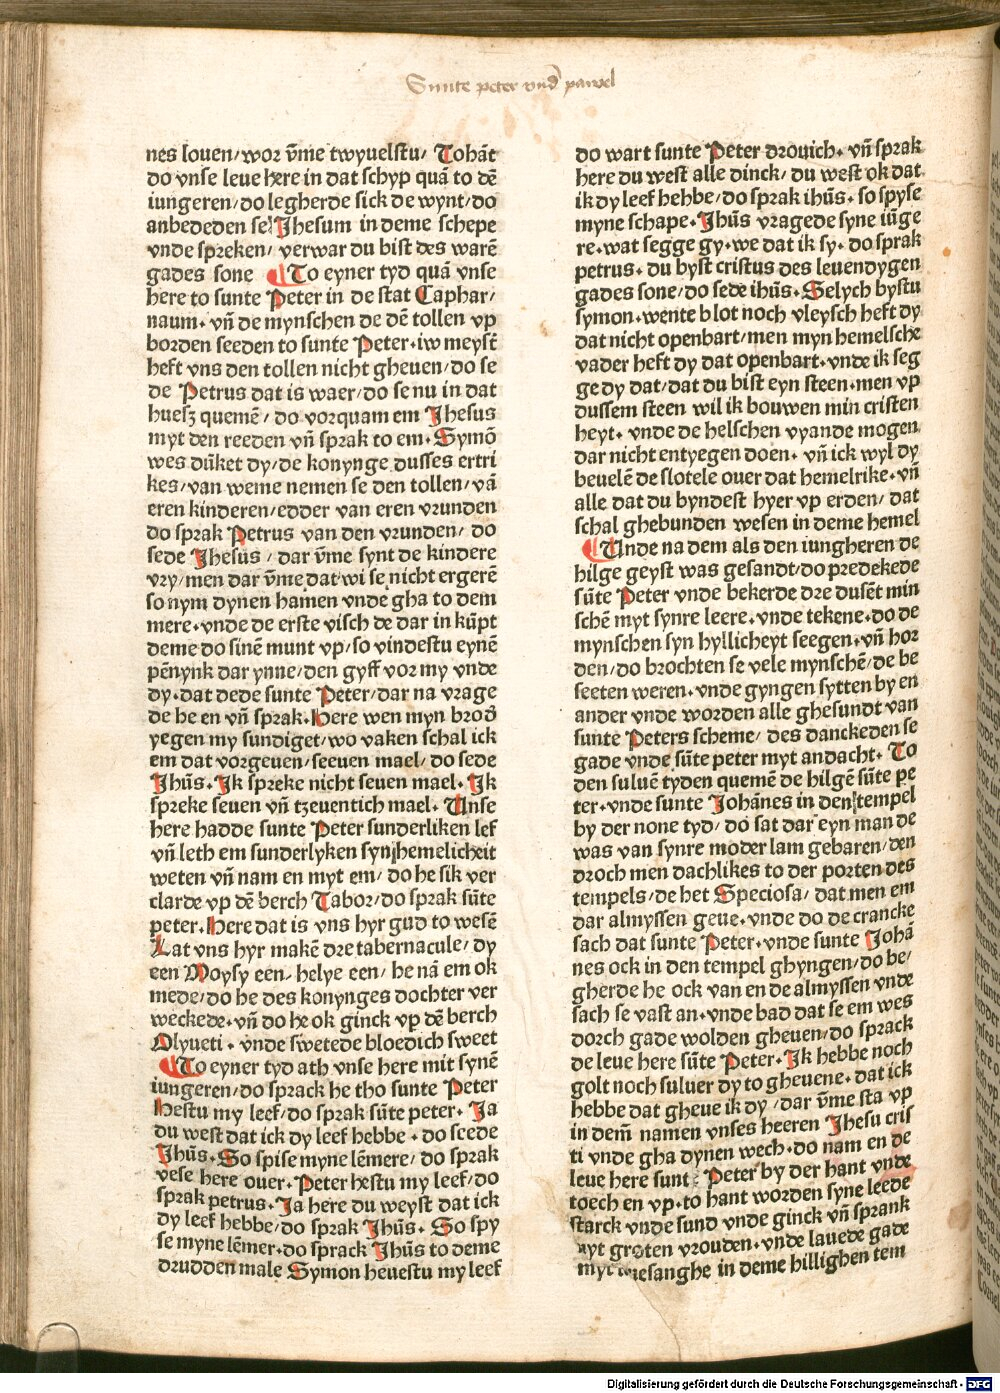 Sunte peter vnd pawel
nes louen/wor v̄me twyuelstu/ Tohāt
do vnse leue here in dat schyp quā to dē
iungeren/do legherde sick de wynt/do
anbededen se Jhesum in deme schepe
vnde spreken/ verwar du bist des warē
gades sone ¶ To eyner tyd quā vnse
here to sunte Peter in de stat Caphar/
naum. vn̄ de mynschen de dē tollen vp
borden seeden to sunte Peter. iw meyst̄
heft vns den tollen nicht gheuen/do se
de Petrus dat is waer/do se nu in dat
huesz quemē/do vorquam em Jhesus
myt den reeden vn̄ sprak to em. Symō
wes dūket dy/de konynge dusses ertri
kes/van weme nemen se den tollen/vā
eren kinderen/edder van eren vrunden
do sprak Petrus van den vrunden/ do
sede Jhesūs/ dar v̄me synt de kindere
vry/men dar v̄me dat wi se nicht ergerē
so nym dynen hamen vnde gha to dem
mere. vnde de erste visch de dar in kūpt
deme do sinē munt vp/so vindestu eynē
pēnynk dar ynne/den gyff vor my vnde
dy. dat dede sunte Peter/dar na vrage
de he en vn̄ sprak. Here wen myn brod̄
yegen my sundiget/wo vaken schal ick
em dat vorgeuen/seeuen mael/do sede
Jhūs. Jk spreke nicht seuen mael. Jk
spreke seuen vn̄ tzeuentich mael. Vnse
here hadde sunte Peter sunderliken lef
vn̄ leth em sunderlyken syn hemelicheit
weten vn̄ nam en myt em/do he sik ver
clarde vp dē berch Tabor/do sprak sūte
peter. Here dat is vns hyr gud to wesē
Lat vns hyr makē dre tabernacule/dy
een Moysy een. helye een/he nā em ok
mede/do he des konynges dochter ver
weckede. vn̄ do he ok ginck vp dē berch
Olyueti. vnde swetede bloedich sweet
¶ To eyner tyd ath vnse here mit synē
iungeren/do sprack he tho sunte Peter
Hestu my leef/do sprak sūte peter. Ja
du west dat ick dy leef hebbe. do seede
Jhūs. So spise myne lēmere/do sprak
vese here ouer. Peter hestu my leef/do
sprak petrus. Ja here du weyst dat ick
dy leef hebbe/do sprak Jhūs. So spy
se myne lēmer. do sprack Jhūs to deme
drudden male Symon heuestu my leef
do wart sunte Peter drouich. vn̄ sprak
here du west alle dinck/ du west ok dat
ik dy leef hebbe/do sprak ihūs. so spyse
myne schape. Jhūs vragede syne iūge
re. wat segge gy. we dat ik sy. do sprak
petrus. du byst cristus des leuendygen
gades sone/do sede ihūs. Selych bystu
symon. wente blot noch vleysch heft dy
dat nicht openbart/men myn hemelsche
vader heft dy dat openbart. vnde ik seg
ge dy dat/dat du bist eyn steen. men vp
dussem steen wil ik bouwen min cristen
heyt. vnde de helschen vyande mogen
dar nicht entyegen doen. vn̄ ick wyl dy
beuelē de slotele ouer dat hemelrike. vn̄
alle dat du byndest hyer vp erden/ dat
schal ghebunden wesen in deme hemel
¶ Vnde na dem als den iungheren de
hilge geyst was gesandt/do predekede
sūte Peter vnde bekerde dre dusēt min
schē myt synre leere. vnde tekene. do de
mynschen syn hyllicheyt seegen. vn̄ hor
den/do brochten se vele mynschē/de be
seeten weren. vnde gyngen sytten by en
ander vnde worden alle ghesundt van
sunte Peters scheme/ des danckeden se
gade vnde sūte peter myt andacht. To
den suluē tyden quemē de hilgē sūte pe
ter. vnde sunte Johānes in den tempel
by der none tyd/ do sat dar eyn man de
was van synre moder lam gebaren/den
droch men dachlikes to der porten des
tempels/de het Speciosa/ dat men em
dar almyssen geue. vnde do de crancke
sach dat sunte Peter. vnde sunte Johā
nes ock in den tempel ghyngen/do be/
gherde he ock van en de almyssen vnde
sach se vast an. vnde bad dat se em wes
dorch gade wolden gheuen/do sprack
de leue here sūte Peter. Jk hebbe noch
golt noch suluer dy to gheuene. dat ick
hebbe dat gheue ik dy/dar v̄me sta vp
in dem̄ namen vnses heeren Jhesu cris
ti vnde gha dynen wech. do nam en de
leue here sunt Peter by der hant vnde
toech en vp. to hant worden syne leede
starck vnde sund vnde ginck vn̄ sprank
myt groten vrouden. vnde lauede gade
myt louesanghe in deme hillighen tem
Digitalisierung gefördert durch die Deutsche Forschungsgemeinschaft - DFG